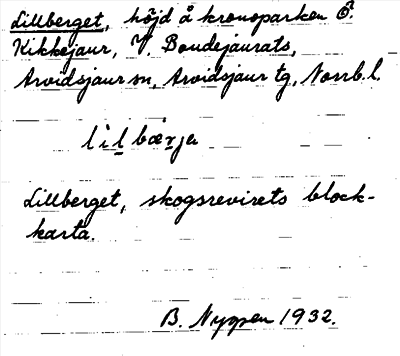 Lillberget, höjd å kronoparken Ö.
Kikkejaur, V. Boudejaurats,
Arvidsjaur sn, Arvidsjaur tg, Norrb. l.
lìlbærja
Lillberget, skogsrevirets block-
karta.
B. Nygren 1932.